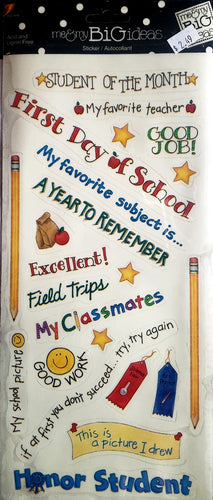 Acid and
Lignin Free
me&my BiG ideas
Sticker / Autocollant
me&my
BiG
$2.49
STUDENT OF THE MONTH
My favorite teacher
First Day of School
GOOD
JOB!
My favorite subject is...
A YEAR TO REMEMBER
Excellent!
Field Trips
My Classmates
My school picture
GOOD WORK
if at first you don't succeed... try, try again
This is
a picture I drew
Honor Student